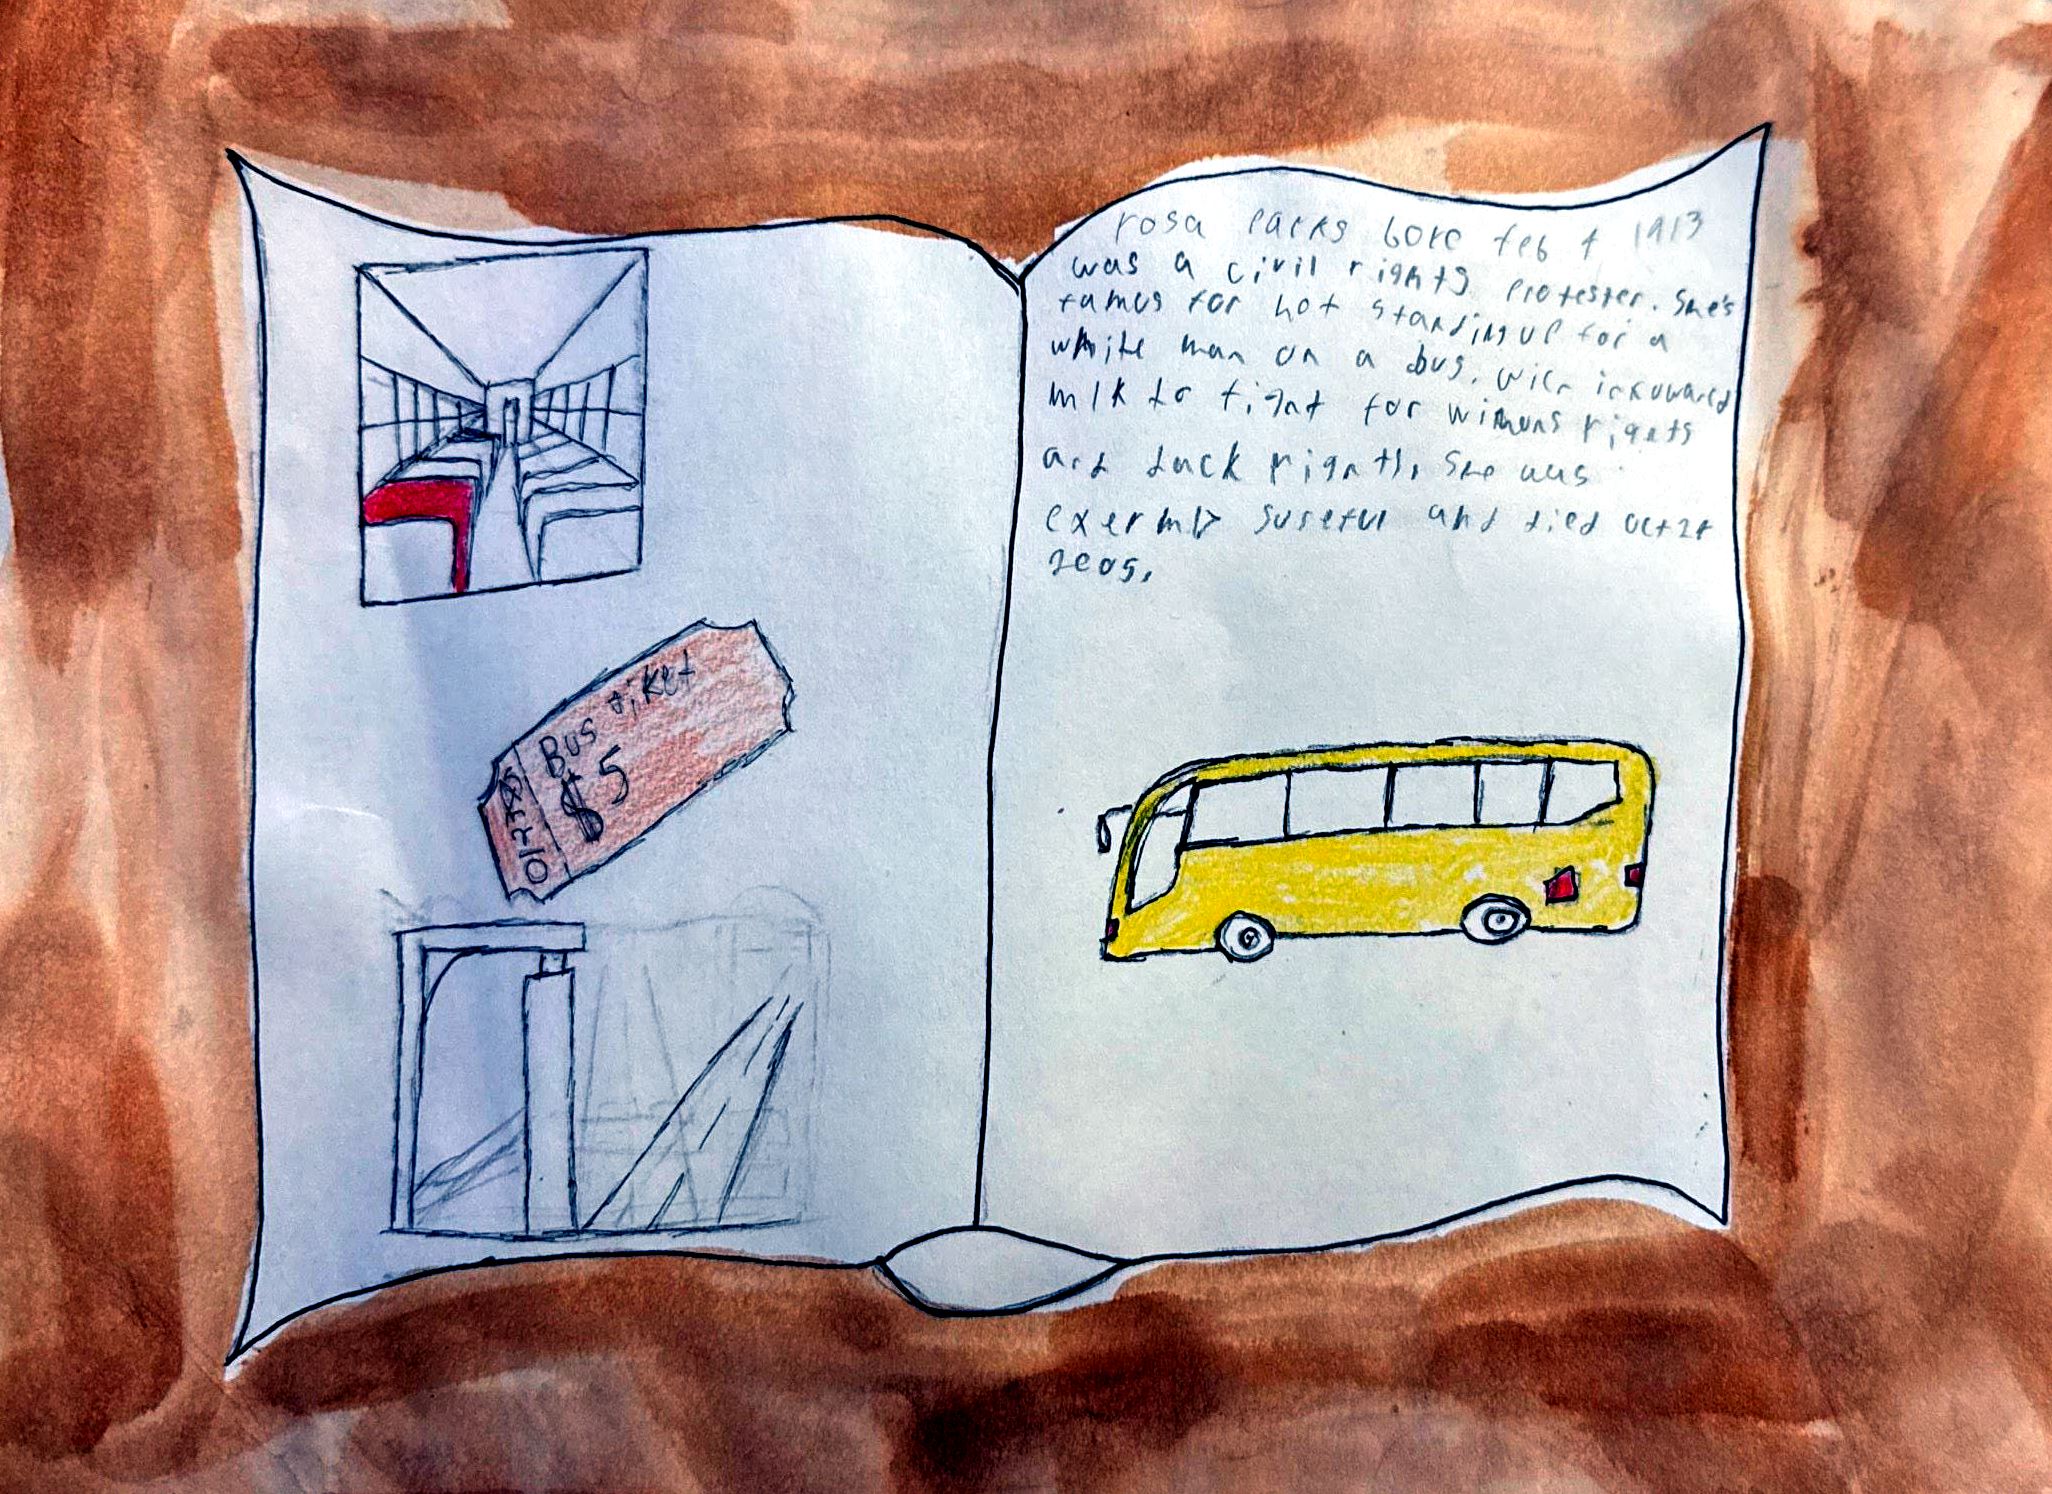 Bus tiket
$5
rosa Parks bore feb 4 1913
was a civil rights Protester. She's
famus for not standing up for a
white man on a bus. wich
mlk to fight for rights
and rights. She was
suseful and died oct 24
2005.